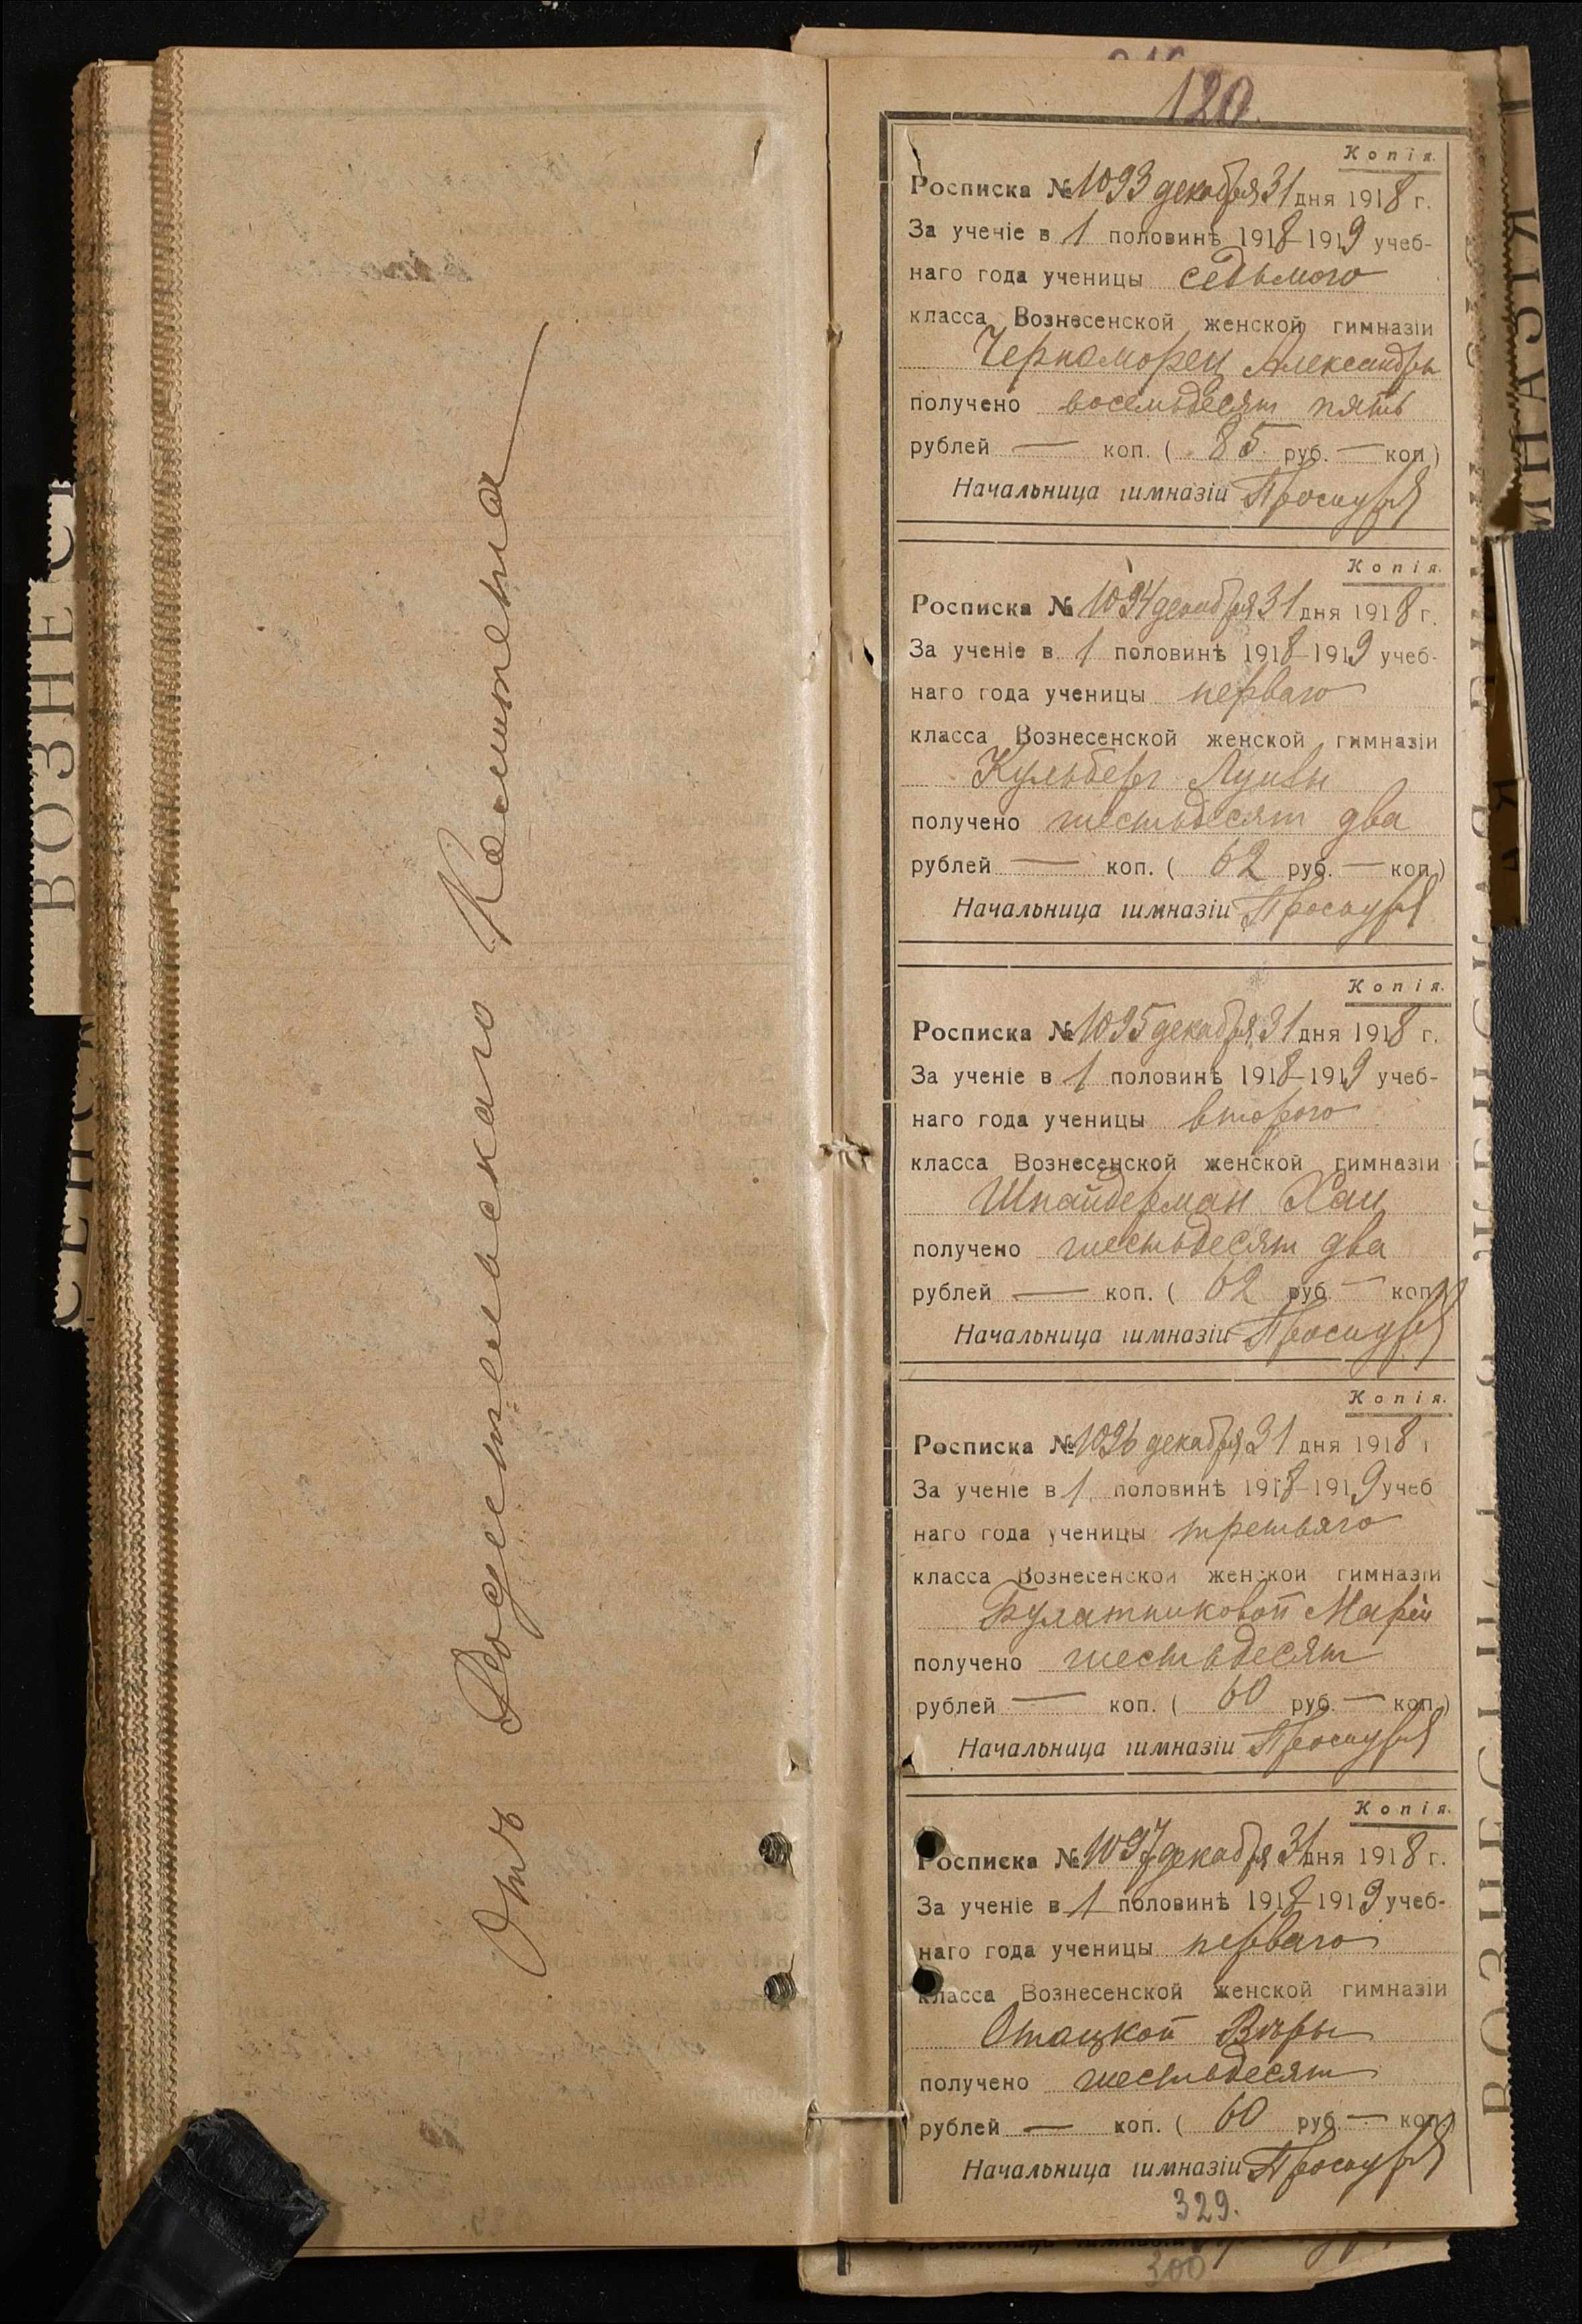 Отъ Родительскаго Комитета
120.
Копія.
Росписка № 1093 декабря 31 дня 1918 г.
За ученіе в 1 половинѣ 1918-1919 учеб-
наго года ученицы седьмого
класса Вознесенской женской гимназіи
Черноморец Александры
получено восемьдесят пять
рублей — коп. ( 85 руб. — коп)
Начальница гимназіи
Копія.
Росписка № 1094 декабря 31 дня 1918 г.
За ученіе в 1 половинѣ 1918-1919 учеб-
наго года ученицы перваго
класса Вознесенской женской гимназіи
Кульберг Луизы
получено шестьдесят два
рублей — коп. ( 62 руб. — коп)
Начальница гимназіи
Копія.
Росписка № 1095 декабря 31 дня 1918 г.
За ученіе в 1 половинѣ 1918-1919 учеб-
наго года ученицы второго
класса Вознесенской женской гимназіи
Шнайдерман Хаи
получено шестьдесят два
рублей — коп. ( 62 руб — коп)
Начальница гимназіи
Копія.
Росписка № 1096 декабря 31 дня 1918 г
За ученіе в 1 половинѣ 1918-1919 учеб
наго года ученицы третьяго
класса Вознесенской женской гимназіи
Булатниковой Маріи
получено шестьдесят
рублей — коп. ( 60 руб. — коп.)
Начальница гимназіи
Копія.
Росписка № 1097 декабря 31 дня 1918 г.
За ученіе в 1 половинѣ 1918-1919 учеб-
наго года ученицы перваго
класса Вознесенской женской гимназіи
Отоцкой Вѣры
получено шестьдесят
рублей — коп. ( 60 руб. — коп.)
Начальница гимназіи
329.
300
ВОЗНЕС